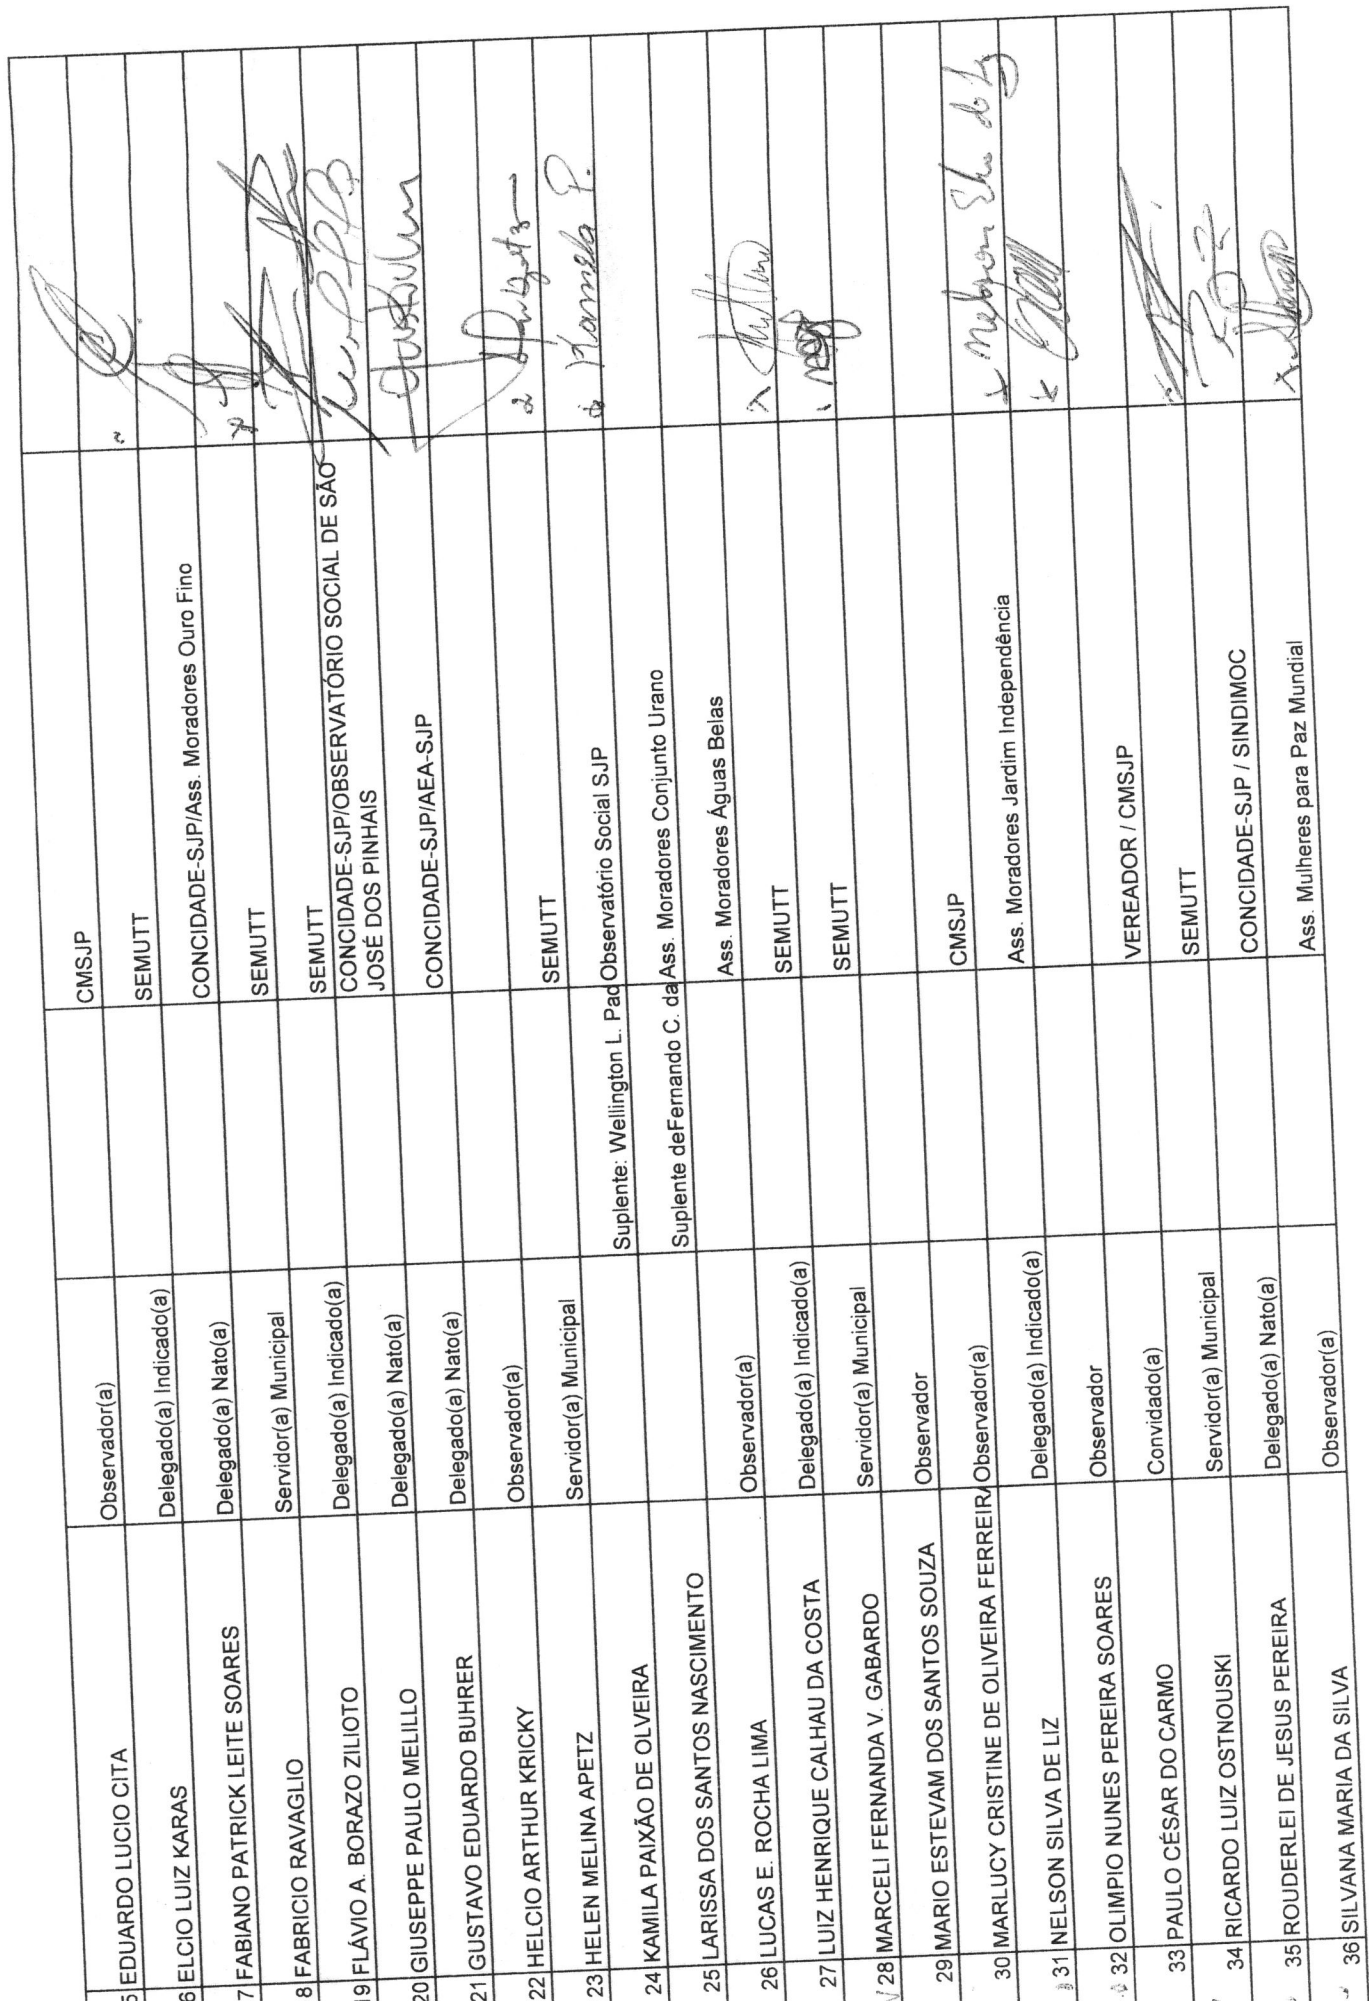 5 EDUARDO LUCIO CITA Observador(a) CMSJP
6 ELCIO LUIZ KARAS Delegado(a) Indicado(a) SEMUTT
7 FABIANO PATRICK LEITE SOARES Delegado(a) Nato(a) CONCIDADE-SJP/Ass. Moradores Ouro Fino
8 FABRICIO RAVAGLIO Servidor(a) Municipal SEMUTT
19 FLÁVIO A. BORAZO ZILIOTO Delegado(a) Indicado(a) SEMUTT
20 GIUSEPPE PAULO MELILLO Delegado(a) Nato(a) CONCIDADE-SJP/OBSERVATÓRIO SOCIAL DE SÃO
JOSÉ DOS PINHAIS
21 GUSTAVO EDUARDO BUHRER Delegado(a) Nato(a) CONCIDADE-SJP/AEA-SJP
22 HELCIO ARTHUR KRICKY Observador(a)
23 HELEN MELINA APETZ Servidor(a) Municipal SEMUTT
24 KAMILA PAIXÃO DE OLVEIRA Suplente: Wellington L. Pad Observatório Social SJP Kamila P.
25 LARISSA DOS SANTOS NASCIMENTO Suplente deFernando C. da Ass. Moradores Conjunto Urano
26 LUCAS E. ROCHA LIMA Observador(a) Ass. Moradores Águas Belas
27 LUIZ HENRIQUE CALHAU DA COSTA Delegado(a) Indicado(a) SEMUTT
28 MARCELI FERNANDA V. GABARDO Servidor(a) Municipal SEMUTT
29 MARIO ESTEVAM DOS SANTOS SOUZA Observador
30 MARLUCY CRISTINE DE OLIVEIRA FERREIRA Observador(a) CMSJP
31 NELSON SILVA DE LIZ Delegado(a) Indicado(a) Ass. Moradores Jardim Independência
32 OLIMPIO NUNES PEREIRA SOARES Observador
33 PAULO CÉSAR DO CARMO Convidado(a) VEREADOR / CMSJP
34 RICARDO LUIZ OSTNOUSKI Servidor(a) Municipal SEMUTT
35 ROUDERLEI DE JESUS PEREIRA Delegado(a) Nato(a) CONCIDADE-SJP / SINDIMOC
36 SILVANA MARIA DA SILVA Observador(a) Ass. Mulheres para Paz Mundial